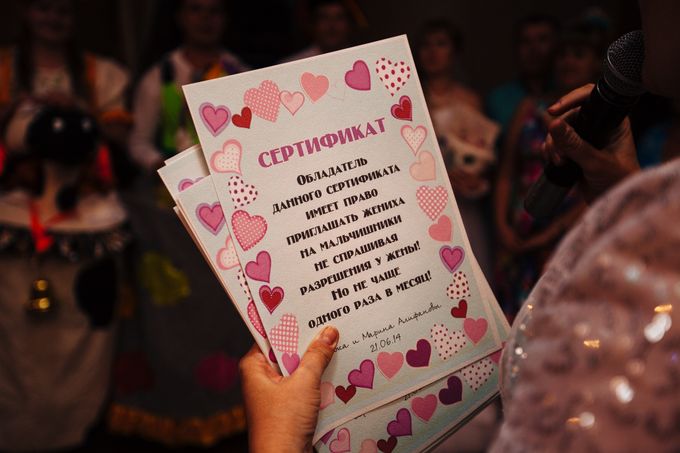 СЕРТИФИКАТ
Обладатель
данного сертификата
имеет право
приглашать жениха
на мальчишники
не спрашивая
разрешения у жены!
Но не чаще
одного раза в месяц!
и Марина
21.06.14